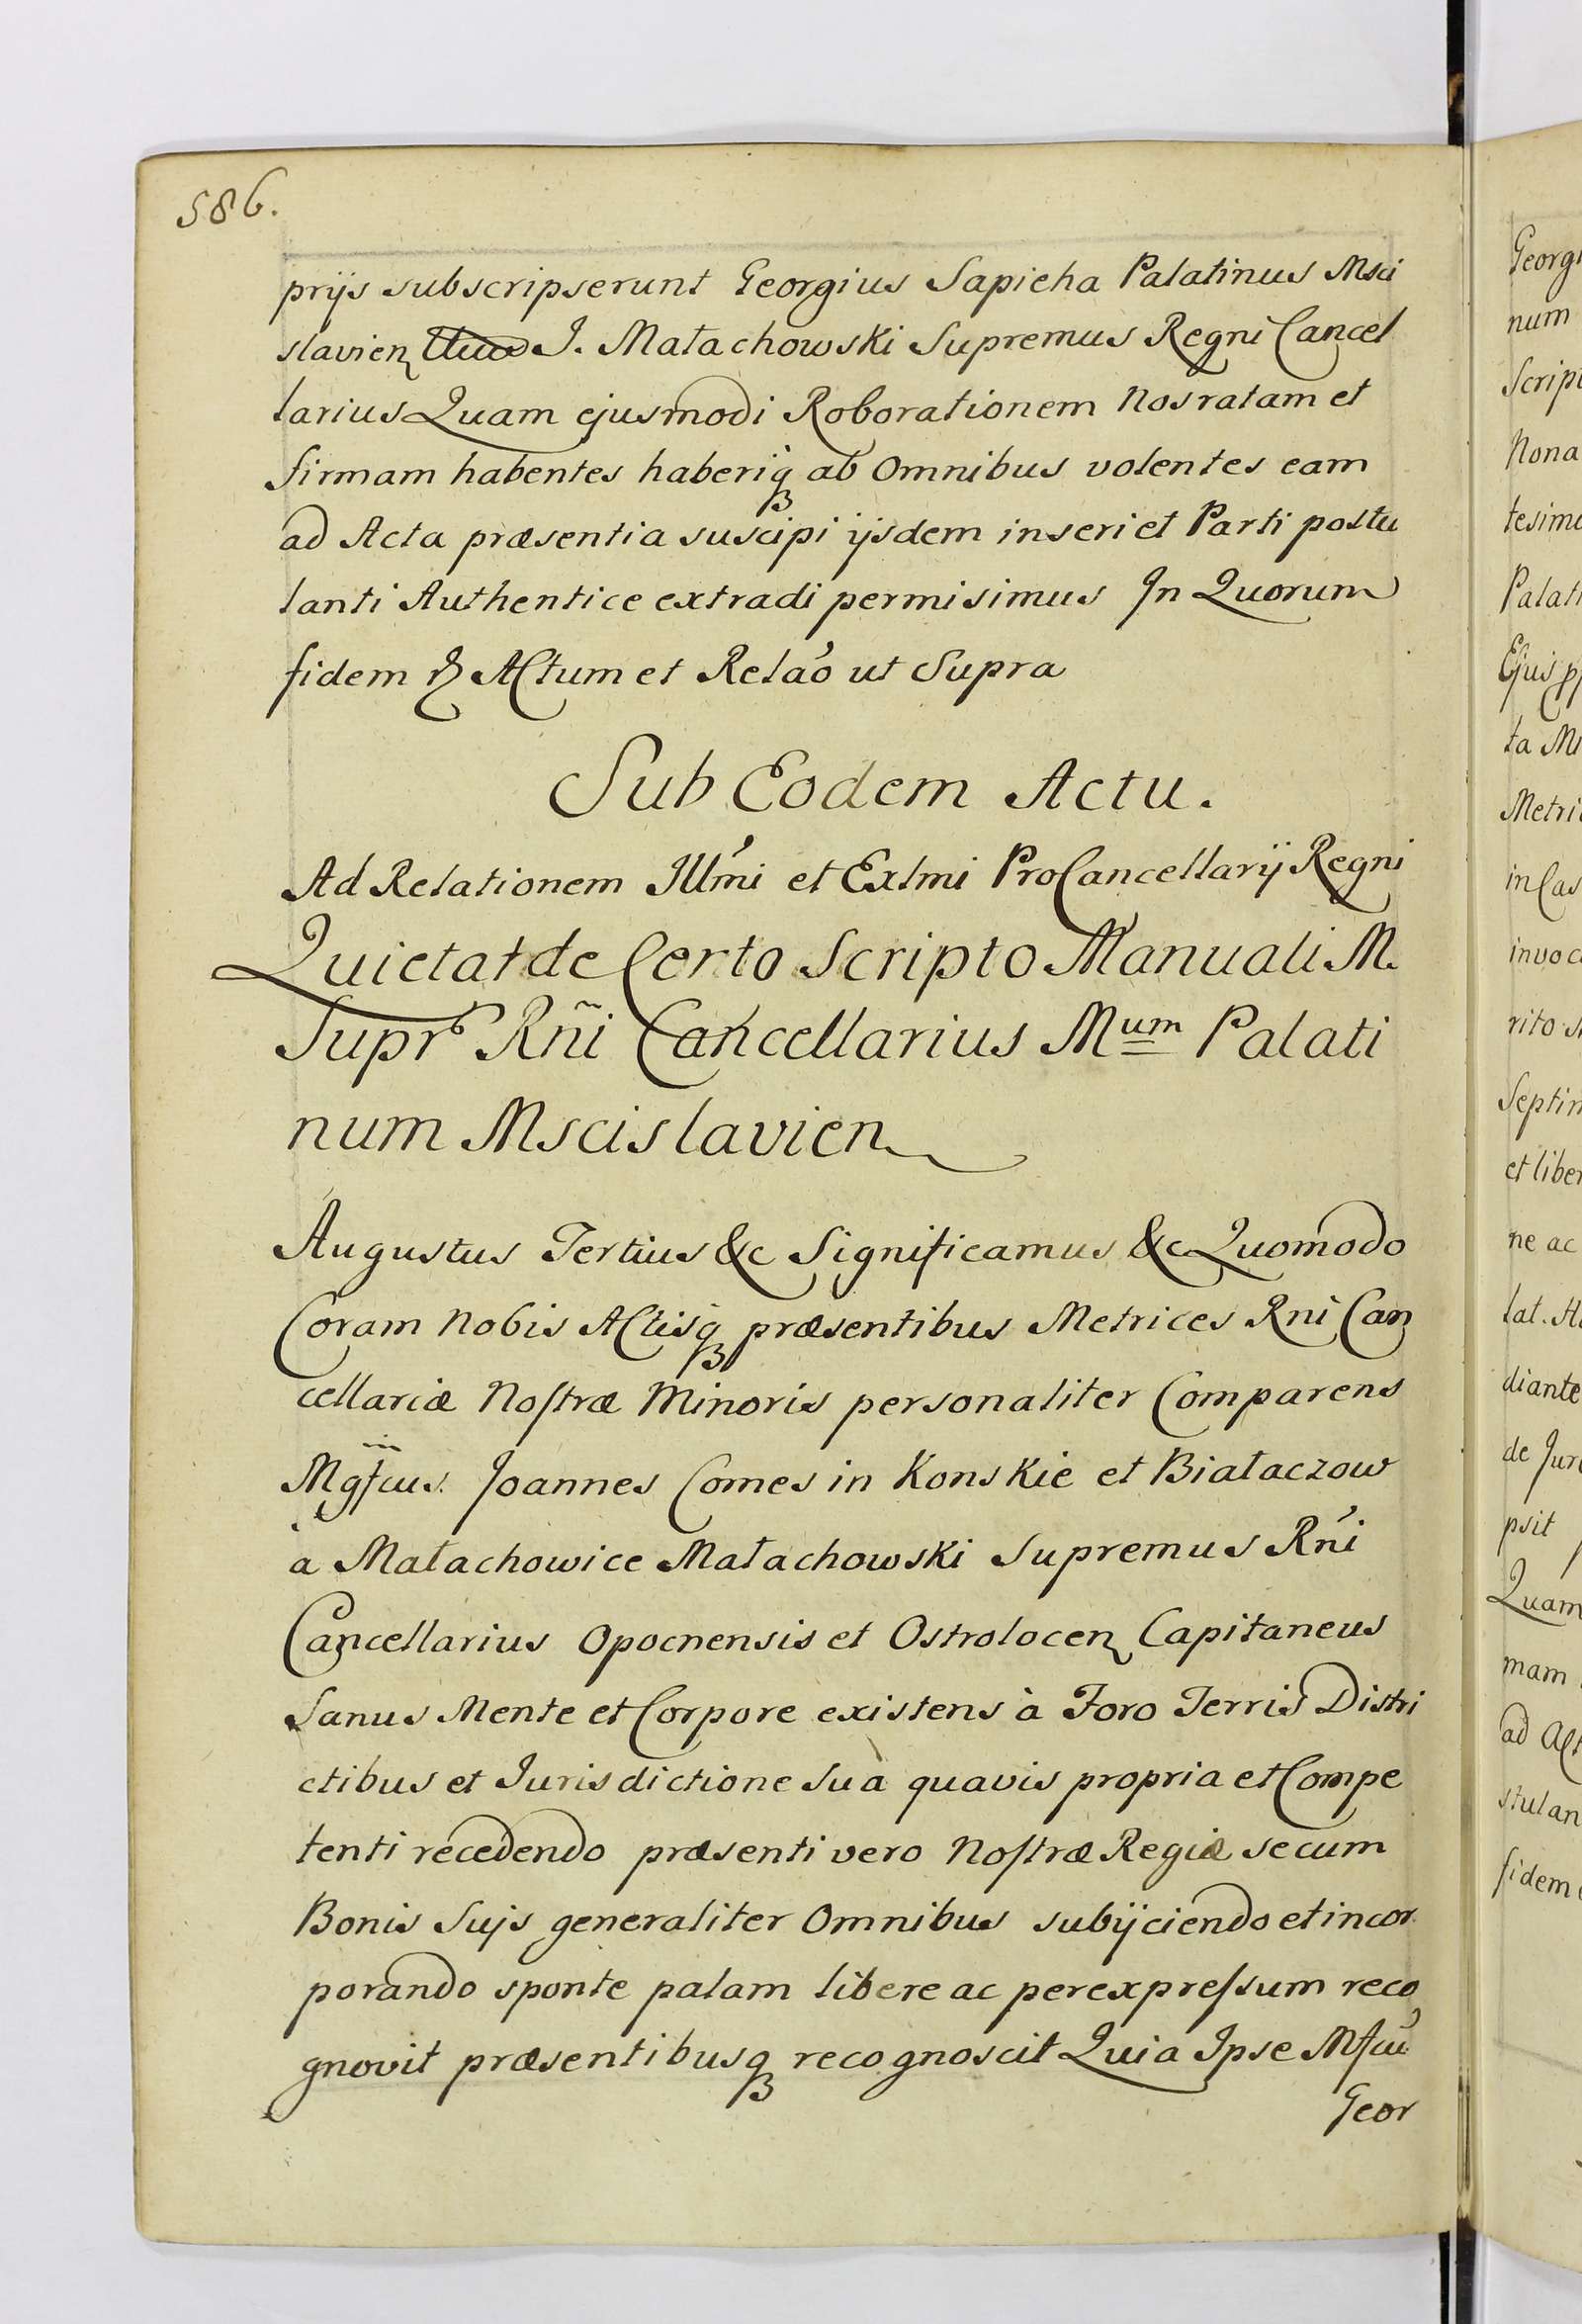 586.
prijs subscripserunt Georgius Sapieha Palatinus Msci
slavien J. Małachowski Supremus Regni Cancel
larius Quam ejusmodi Roborationem Nos ratam et
firmam habentes haberiq ab Omnibus volentes eam
ad Acta præsentia suscipi ijsdem inseri et Parti postu
lanti Authentice extradi permisimus In Quorum
fidem Actum et Relao ut Supra
Sub Eodem Actu.
Ad Relationem Illmi et Exlmi ProCancellarij Regni
Quietat de Certo Scripto Manuali M.
Supr Rñi Cancellarius Mum Palati
num Mscislavien
Augustus Tertius &c Significamus &c Quomodo
Coram Nobis Actisq præsentibus Metrices Rni Can
cellariæ Nostræ Minoris personaliter Comparens
Mgfcus. Joannes Comes in Konskie et Białaczow
à Małachowice Małachowski Supremus Rni
Cancellarius Opocnensis et Ostrolocen Capitaneus
Sanus Mente et Corpore existens à Foro Terris Distri
ctibus et Jurisdictione Suà quavis propria et Compe
tenti recedendo præsenti vero Nostræ Regiæ secum
Bonis Sujs generaliter Omnibus subijciendo et incor
porando sponte palam libere ac per expressum reco
gnovit præsentibusq recognoscit Quia Ipse Mfcu
Geor
Georgi
num
Script
Nona
tesimo
Palati
Ejus
ta M
Metri
in Cas
invoc
rito
Septim
et liber
ne ac
lat.
diante
de Jur
psit
Quam
mam
ad Act
stulan
fidem